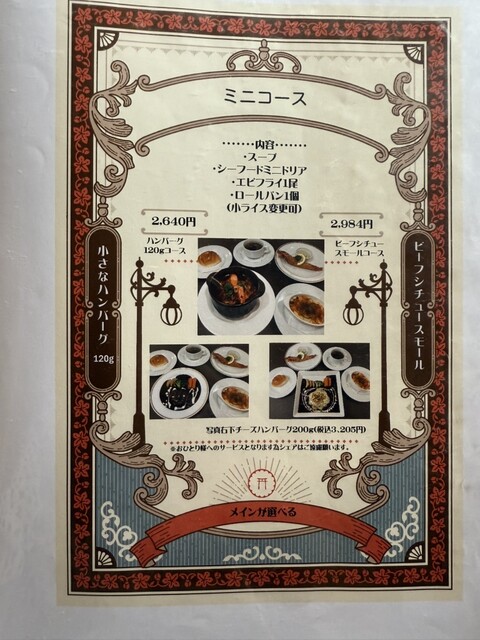 ミニコース
・・・・・・・内容・・・・・・・
・スープ
・シーフードミニドリア
・エビフライ1尾
・ロールパン1個
(小ライス変更可)
2.640円
2.984円
ハンバーグ
120gコース
ビーフシチュー
スモールコース
小さなハンバーグ
120g
ビーフシチュースモール
写真右下チーズハンバーグ200g(税込3.205円)
※おひとり様へのサービスとなります為シェアはご遠慮願います。
メインが選べる